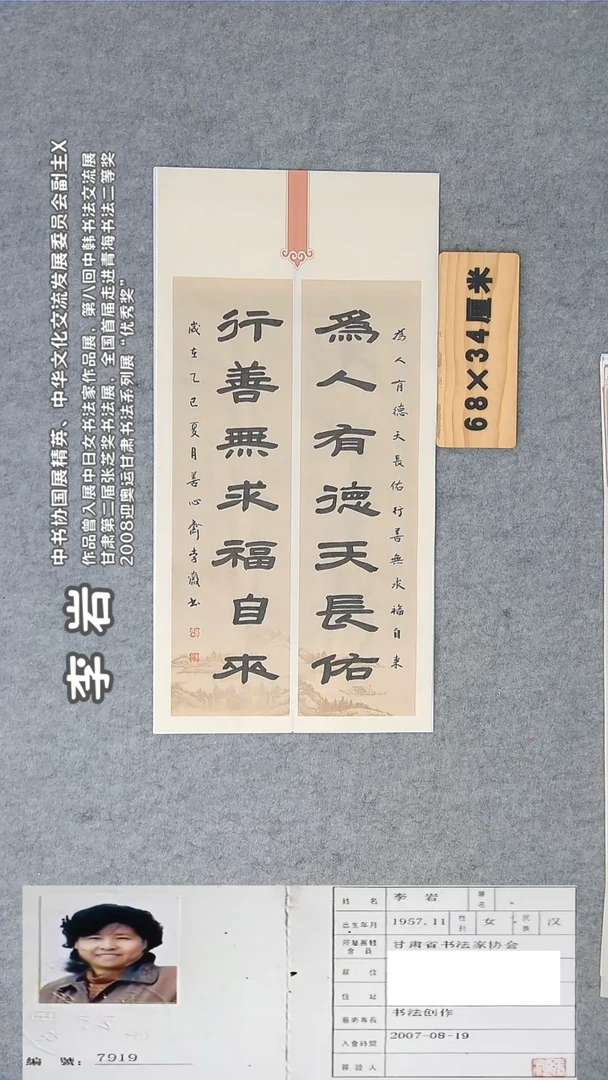 李岩
中书协国展精英、中华文化交流发展委员会副主X
作品曾入展中日女书法家作品展，第八回中韩书法交流展
甘肃第二届张芝奖书法展，全国首届走进青海书法二等奖
2008迎奥运甘肃书法系列展“优秀奖”
為人有德天長佑行善無求福自来
為人有德天長佑
行善無求福自來
歲在乙巳夏月善心齋李巖書
68×34厘米
姓名 李岩
出生年月 1957.11 性别 女 民族 汉
甘肃省书法家协会
職位
住址
藝術專長 书法创作
入會時間 2007-08-19
簽證人
編號：7919